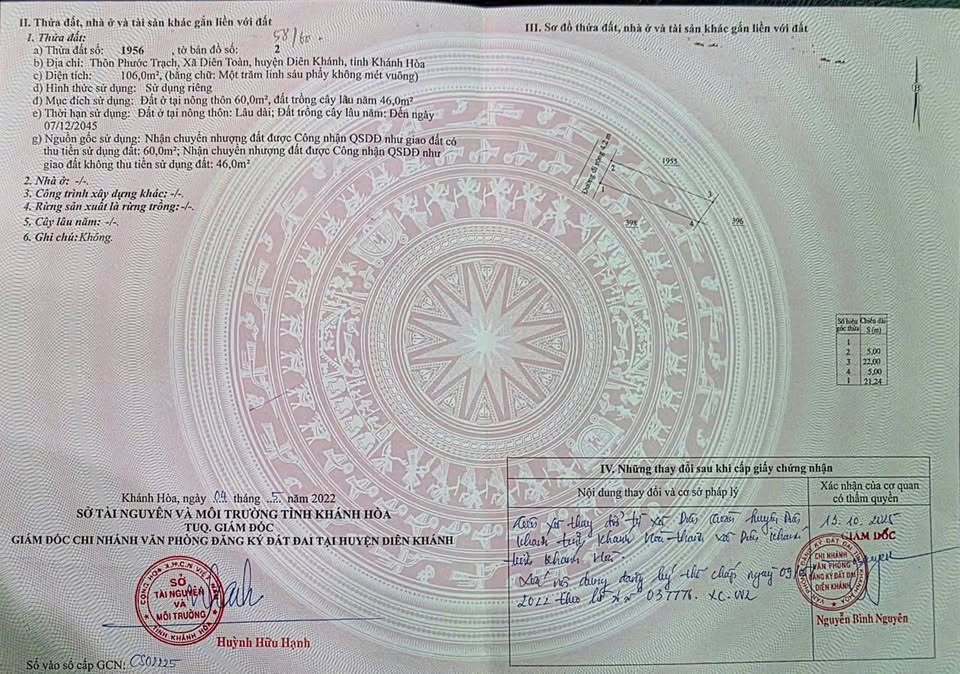 II. Thửa đất, nhà ở và tài sản khác gắn liền với đất
1. Thửa đất:
58/60
a) Thửa đất số: 1956 , tờ bản đồ số: 2
b) Địa chỉ: Thôn Phước Trạch, Xã Diên Toàn, huyện Diên Khánh, tỉnh Khánh Hòa
c) Diện tích: 106,0m², (bằng chữ: Một trăm linh sáu phẩy không mét vuông)
d) Hình thức sử dụng: Sử dụng riêng
đ) Mục đích sử dụng: Đất ở tại nông thôn 60,0m², đất trồng cây lâu năm 46,0m²
e) Thời hạn sử dụng: Đất ở tại nông thôn: Lâu dài; Đất trồng cây lâu năm: Đến ngày
07/12/2045
g) Nguồn gốc sử dụng: Nhận chuyển nhượng đất được Công nhận QSDĐ như giao đất có
thu tiền sử dụng đất: 60,0m²; Nhận chuyển nhượng đất được Công nhận QSDĐ như
giao đất không thu tiền sử dụng đất: 46,0m²
2. Nhà ở: -/-.
3. Công trình xây dựng khác: -/-.
4. Rừng sản xuất là rừng trồng:-/-.
5. Cây lâu năm: -/-.
6. Ghi chú:Không.
Khánh Hòa, ngày 09 tháng .5. năm 2022
SỞ TÀI NGUYÊN VÀ MÔI TRƯỜNG TỈNH KHÁNH HÒA
TUQ. GIÁM ĐỐC
GIÁM ĐỐC CHI NHÁNH VĂN PHÒNG ĐĂNG KÝ ĐẤT ĐAI TẠI HUYỆN DIÊN KHÁNH
CỘNG HÒA X.H.C.N VIỆT NAM
SỞ
TÀI NGUYÊN
VÀ
MÔI TRƯỜNG
TỈNH KHÁNH HÒA
Huỳnh Hữu Hạnh
Số vào sổ cấp GCN: CS02225
III. Sơ đồ thửa đất, nhà ở và tài sản khác gắn liền với đất
B
Đường đi rộng 4,2 m
2
1955
1
3
398
4
396
Số hiệu góc thửa Chiều dài S (m)
1
2 5,00
3 22,00
4 5,00
1 21,24
IV. Những thay đổi sau khi cấp giấy chứng nhận
Nội dung thay đổi và cơ sở pháp lý
Xác nhận của cơ quan
có thẩm quyền
thay đổi từ xã Diên Toàn huyện Diên
Khánh tỉnh Khánh Hòa thành xã Diên Khánh
tỉnh Khánh Hòa.
Xóa nội dung đăng ký thế chấp ngày 09/
2022 theo hồ sơ 037778. XC. 002
15.10.2025
GIÁM ĐỐC
CHI NHÁNH
VĂN PHÒNG
ĐĂNG KÝ ĐẤT ĐAI
DIÊN KHÁNH
Nguyễn Bình Nguyên